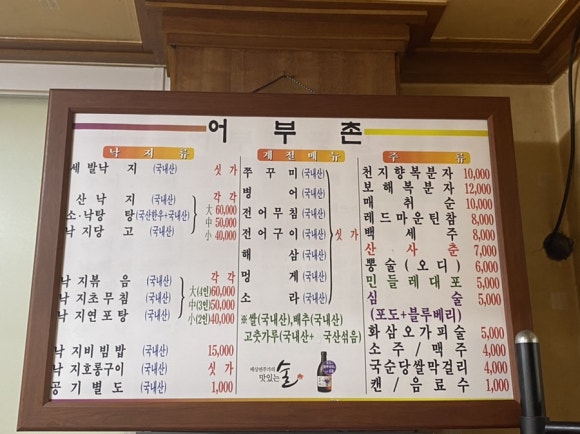 어 부 촌
낙 지 류
세 발 낙 지 (국내산) 싯 가
산 낙 지 (국내산) 각 각
소·낙탕 탕 (국산한우+국내산) 大 60,000
中 50,000
낙 지 당 고 (국내산) 小 40,000
낙 지 볶 음 (국내산) 각 각
大(4인)60,000
낙 지 초 무 침 (국내산) 中(3인)50,000
낙 지 연 포 탕 (국내산) 小(2인)40,000
낙 지 비 빔 밥 (국내산) 15,000
낙 지 호 롱 구 이 (국내산) 싯 가
공 기 별 도 (국내산) 1,000
계 절 메 뉴
쭈 꾸 미 (국내산)
병 어 (국내산)
전 어 무 침 (국내산)
전 어 구 이 (국내산) 싯 가
해 삼 (국내산)
멍 게 (국내산)
소 라 (국내산)
※쌀(국내산),배추(국내산)
고춧가루(국내산+ 국산섞음)
맛있는 술
주 류
천 지 향 복 분 자 10,000
보 해 복 분 자 12,000
매 취 순 10,000
레 드 마 운 틴 참 8,000
백 세 주 8,000
산 사 춘 7,000
뽕 술 ( 오 디 ) 6,000
민 들 레 대 포 5,000
심 술 5,000
(포도+블루베리)
화 삼 오 가 피 술 5,000
소 주 / 맥 주 4,000
국순당쌀막걸리 4,000
캔 / 음 료 수 1,000